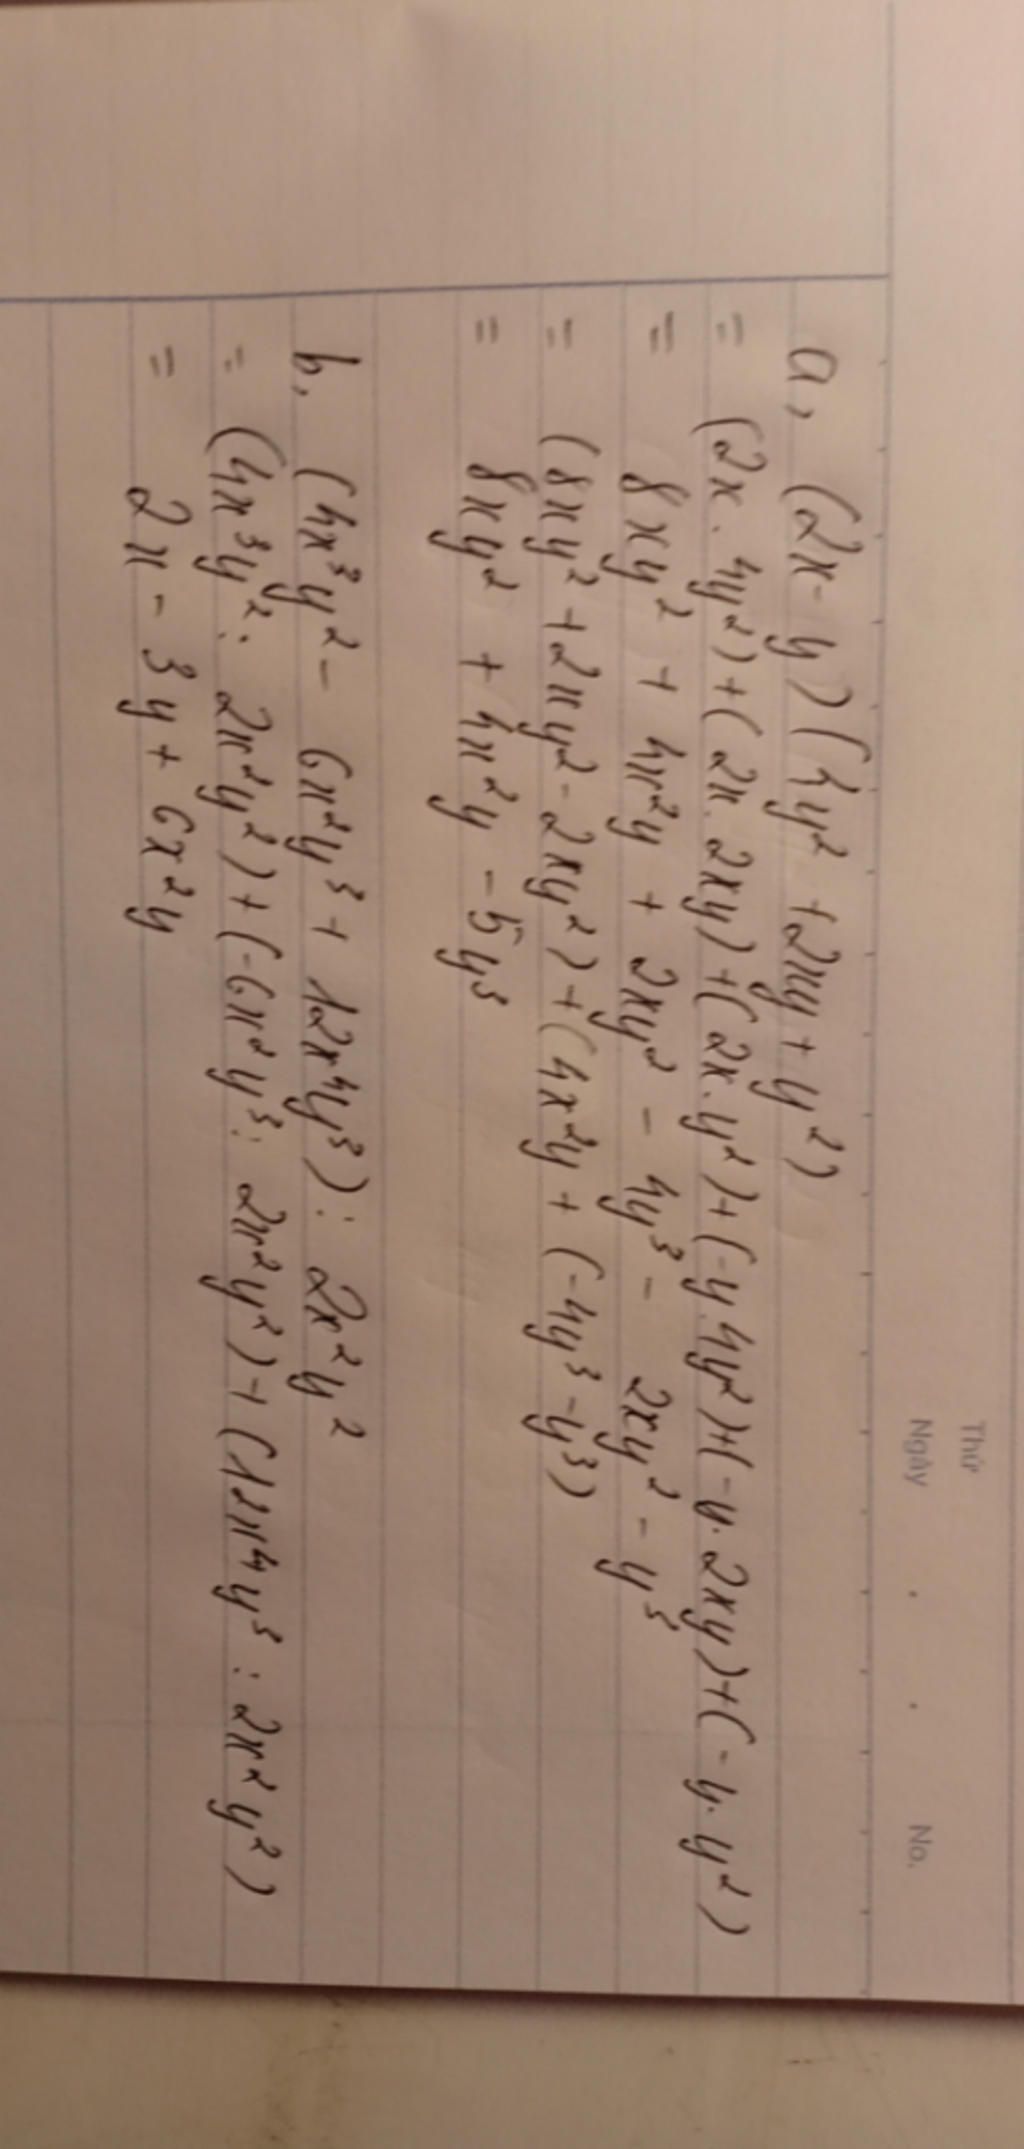 Thứ
Ngày . . No.
a, (2x - y)(4y² + 2xy + y²)
= (2x . 4y²) + (2x . 2xy) + (2x . y²) + (-y . 4y²) + (-y . 2xy) + (-y . y²)
= 8xy² + 4x²y + 2xy² - 4y³ - 2xy² - y³
= (8xy² + 2xy² - 2xy²) + (4x²y + (-4y³ - y³)
= 8xy² + 4x²y - 5y³
b, (4x³y² - 6x²y³ + 12x⁴y³) : 2x²y²
= (4x³y² : 2x²y²) + (-6x²y³ : 2x²y²) + (12x⁴y³ : 2x²y²)
= 2x - 3y + 6x²y